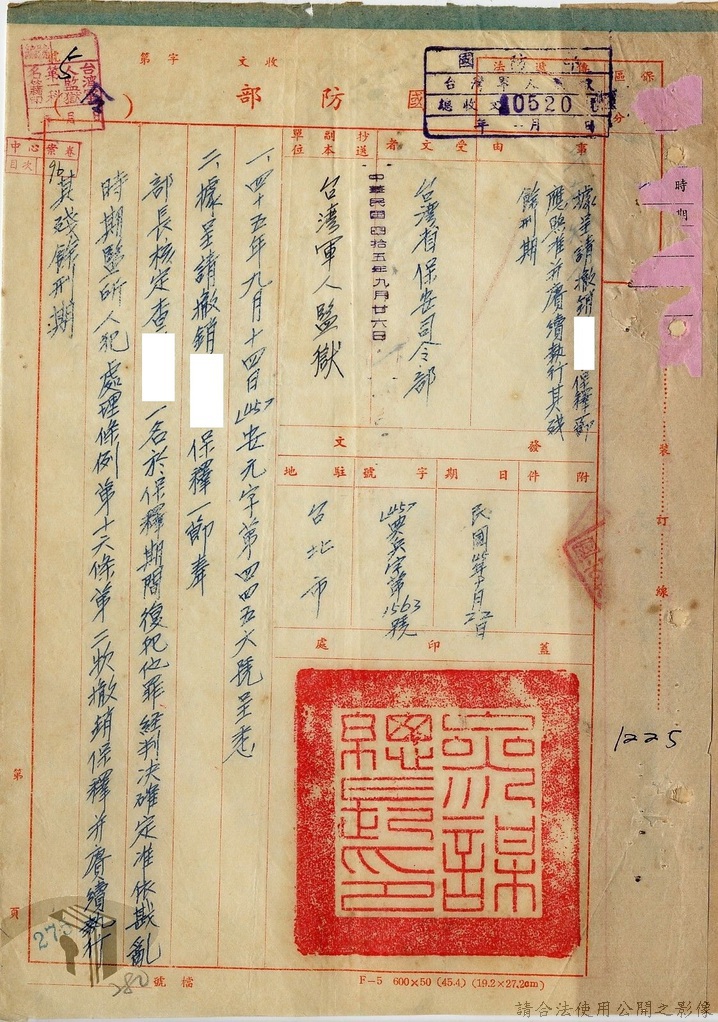 收文
字
第
國防部
（令）
台灣軍人監獄
第一科
國防部
台灣軍人監獄
總收文
10520號
年 月 日
區分
時期
事由
據呈請撤銷
保釋一節
應照准并賡續執行其殘
餘刑期
受文者
台湾省保安司令部
中華民國四拾五年九月廿六日
抄送副本單位
台湾軍人監獄
發文
附件
日期
民國45年9月22日
字號
號
駐地
台北市
蓋印處
參謀總長印
一、四十五年九月十四日(45)安元字第四四五六號呈悉
二、據呈請撤銷
保釋一節奉
部長核定查
一名於保釋期間復犯他罪経判决確定准依戡亂
時期監所人犯處理條例第十六條第二欵撤銷保釋并賡續執行
其殘餘刑期
中心案卷
目次
96
裝訂線
1225
第
頁
275
280
檔號
F-5 600×50 (45.4) (19.2×27.2cm)
請合法使用公開之影像